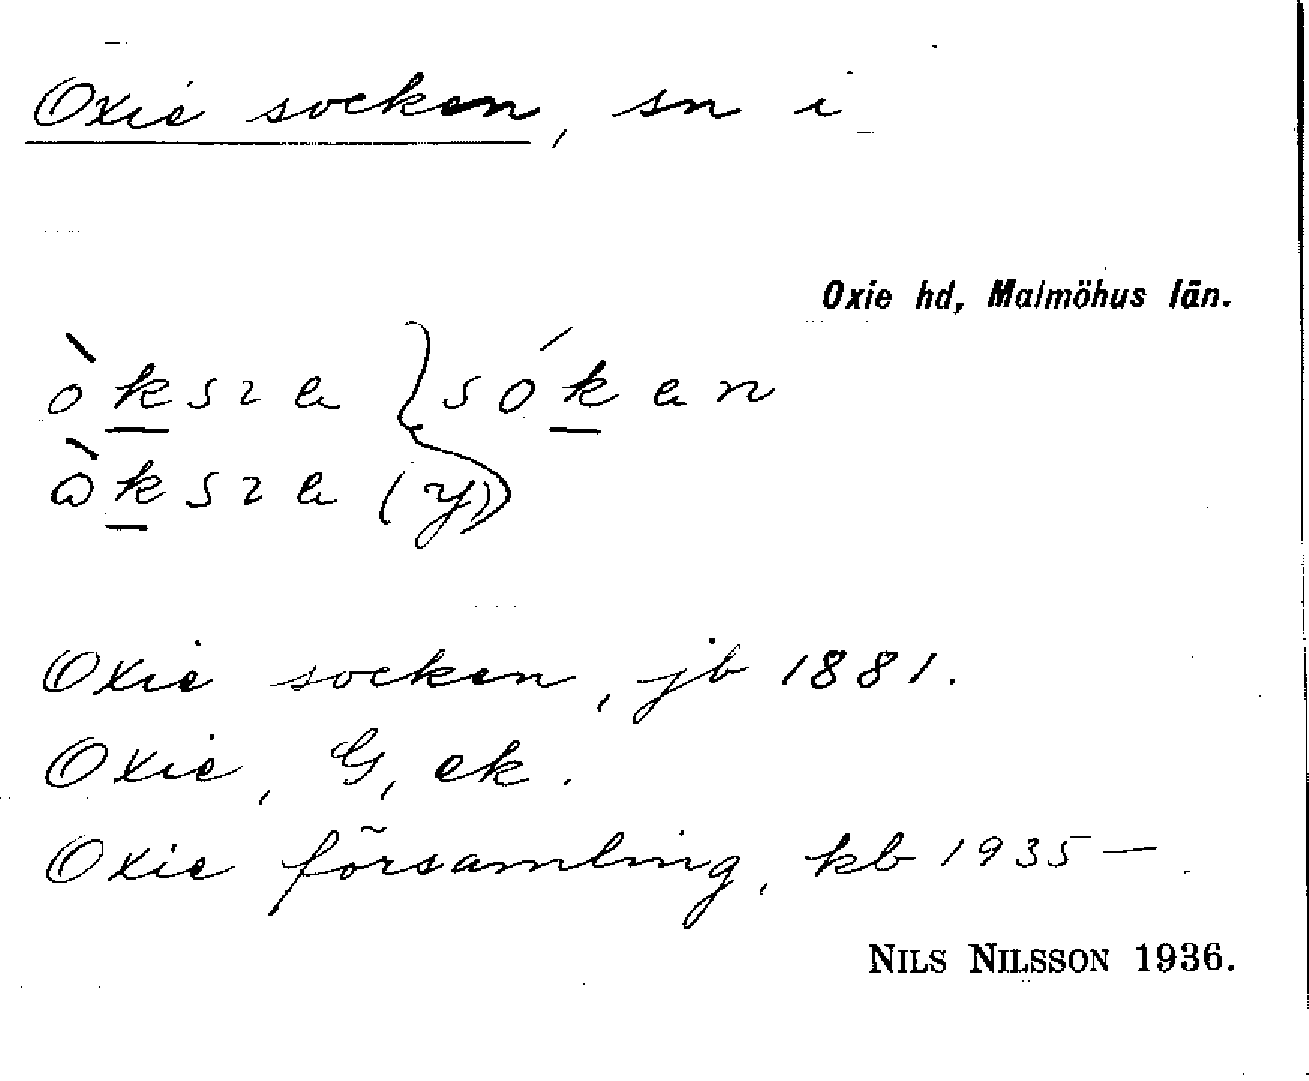 Oxie socken, sn i
Oxie hd, Malmöhus län.
òksıa } sókan
òksıa (y)
Oxie socken, jb 1881.
Oxie, G, ek.
Oxie församling, kb 1935—.
NILS NILSSON 1936.